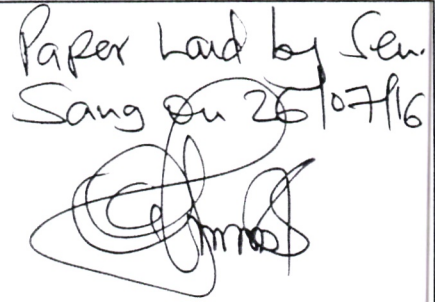 Paper Laid by Sen.
Sang on 26/07/16